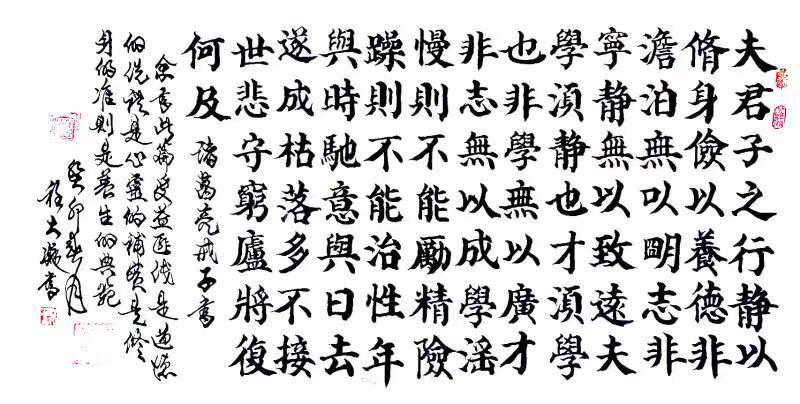 夫君子之行静以
脩身儉以養德非
澹泊無以眀志非
寧静無以致遠夫
學須静也才須學
也非學無以廣才
非志無以成學滛
慢則不能勵精險
躁則不能治性年
與時馳意與日去
遂成枯落多不接
世悲守窮廬將復
何及 諸葛亮戒子書
余書此篇受益匪浅是道德
的洗禮是心靈的補是修
身的准則是養生的典範
癸卯月
大書